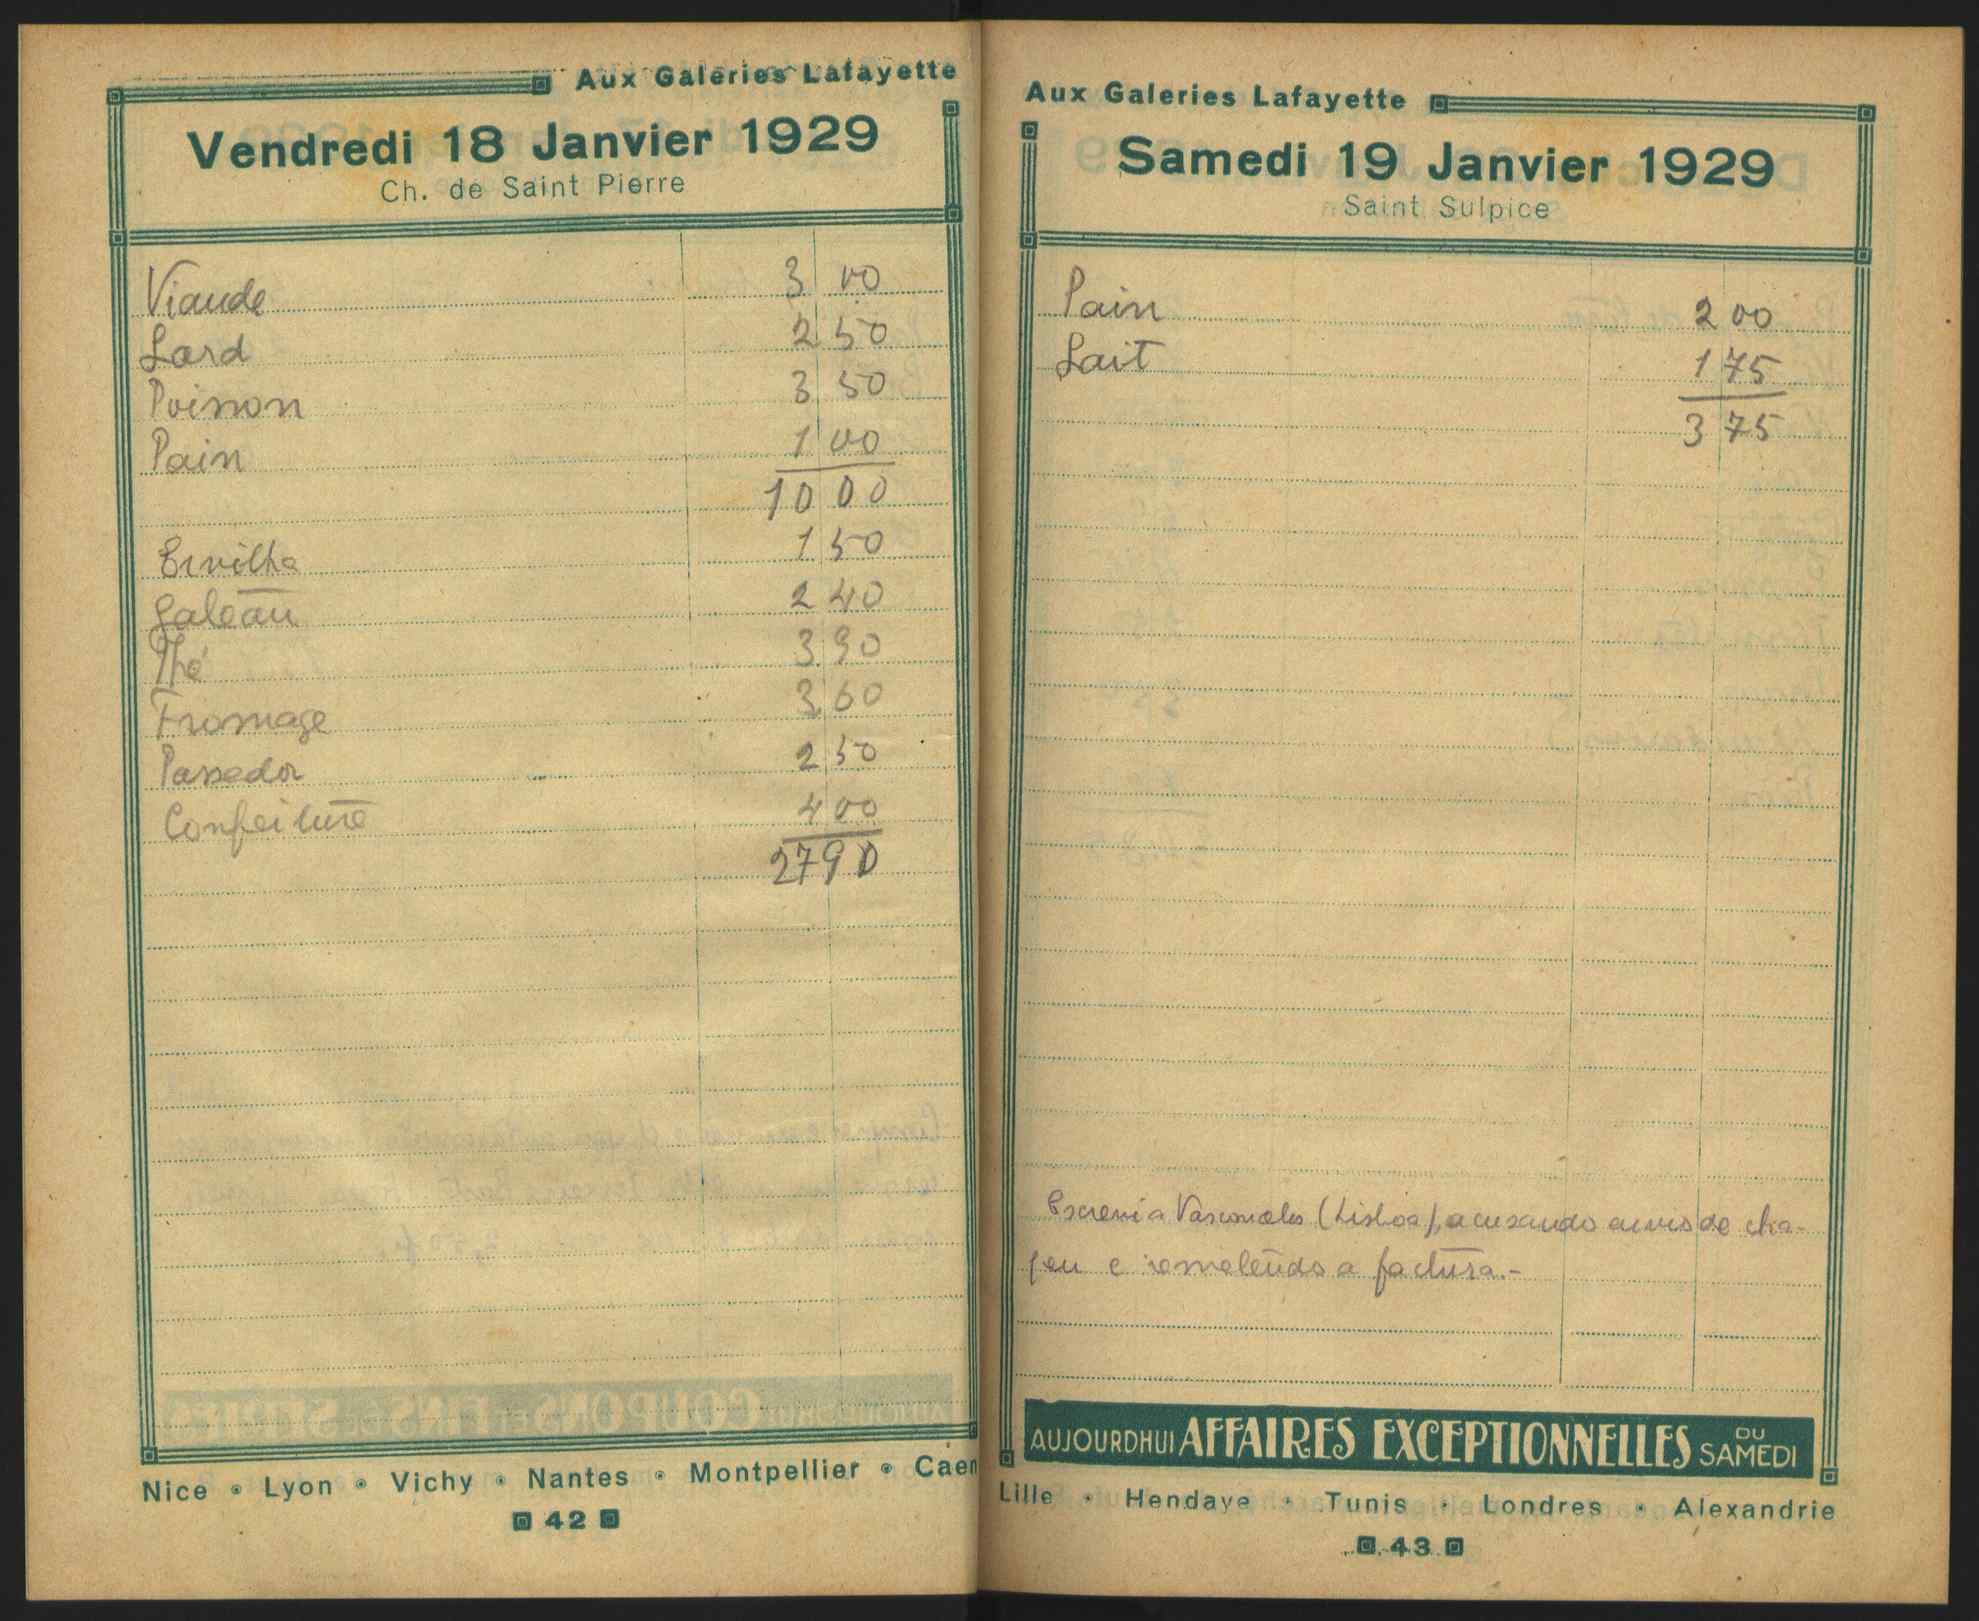 Aux Galeries Lafayette
Vendredi 18 Janvier 1929
Ch. de Saint Pierre
Viande 3 00
Lard 2 50
Poisson 3 50
Pain 1 00
10 00
Ervilha 1 50
Galeau 2 40
Thé 3 90
Fromage 3 60
Passador 2 50
Confeiture 4 00
27 90
Nice • Lyon • Vichy • Nantes • Montpellier • Caen
42
Aux Galeries Lafayette
Samedi 19 Janvier 1929
Saint Sulpice
Pain 2 00
Lait 1 75
3 75
Escrevi a Vasconcelos (Lisboa), acusando envio de cha-
peu e remetendo a factura.-
AUJOURDHUI AFFAIRES EXCEPTIONNELLES DU SAMEDI
Lille • Hendaye • Tunis • Londres • Alexandrie
43